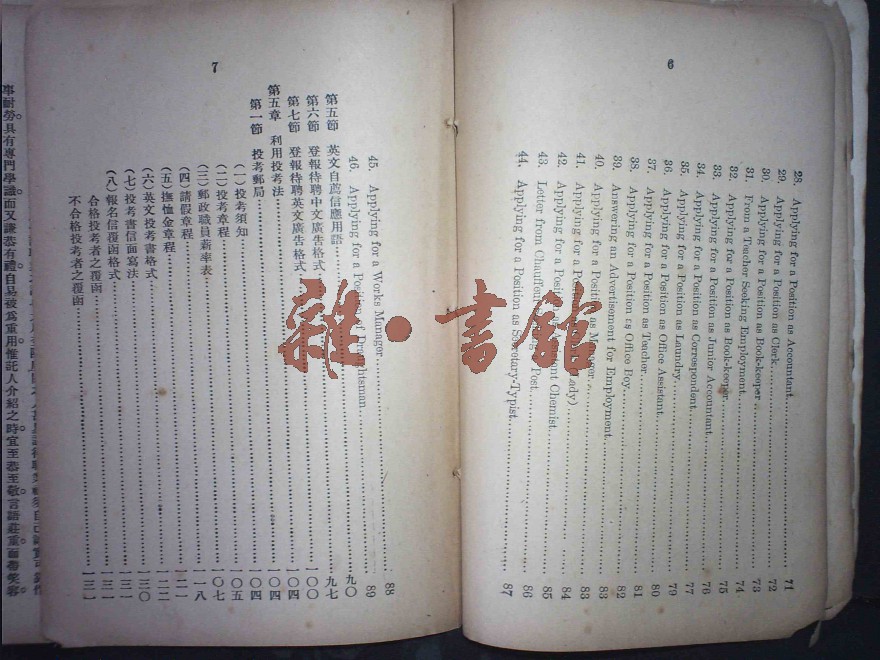 6
28. Applying for a Position as Accountant........71
29. Applying for a Position as Clerk........72
30. Applying for a Position as Book-keeper........73
31. From a Teacher Seeking Employment........74
32. Applying for a Position as Book-keeper........75
33. Applying for a Position as Junior Accountant........76
34. Applying for a Position as Correspondent........77
35. Applying for a Position as Laundry........79
36. Applying for a Position as Office Assistant........80
37. Applying for a Position as Teacher........81
38. Applying for a Position as Office Boy........82
39. Answering an Advertisement for Employment........83
40. Applying for a Position as Manager........83
41. Applying for a Lady)........84
42. Applying for a Position Chemist........85
43. Letter from Chauffeur Post........86
44. Applying for a Position as Secretary-Typist........87
7
45. Applying for a Works Manager........88
46. Applying for a Position of Draughtsman........89
第五節 英文自薦信應用語........九〇
第六節 登報待聘中文廣告格式........九七
第七節 登報待聘英文廣告格式........一〇〇
第五章 利用投考法........一〇四
第一節 投考郵局........一〇四
(一)投考須知........一〇四
(二)投考章程........一〇五
(三)郵政職員薪率表........一〇七
(四)請假章程........一一八
(五)撫恤金章程........一二一
(六)英文投考書格式........一二二
(七)投考書信面寫法........一三〇
(八)報名信覆函格式........一三一
合格投考者之覆函........一三一
不合格投考者之覆函........一三一
事耐勞。具有專門學識。而又謙恭有禮。自易被爲重用。惟託人介紹之時。宜至恭至敬。言語莊重。面帶笑容。
雜·書館